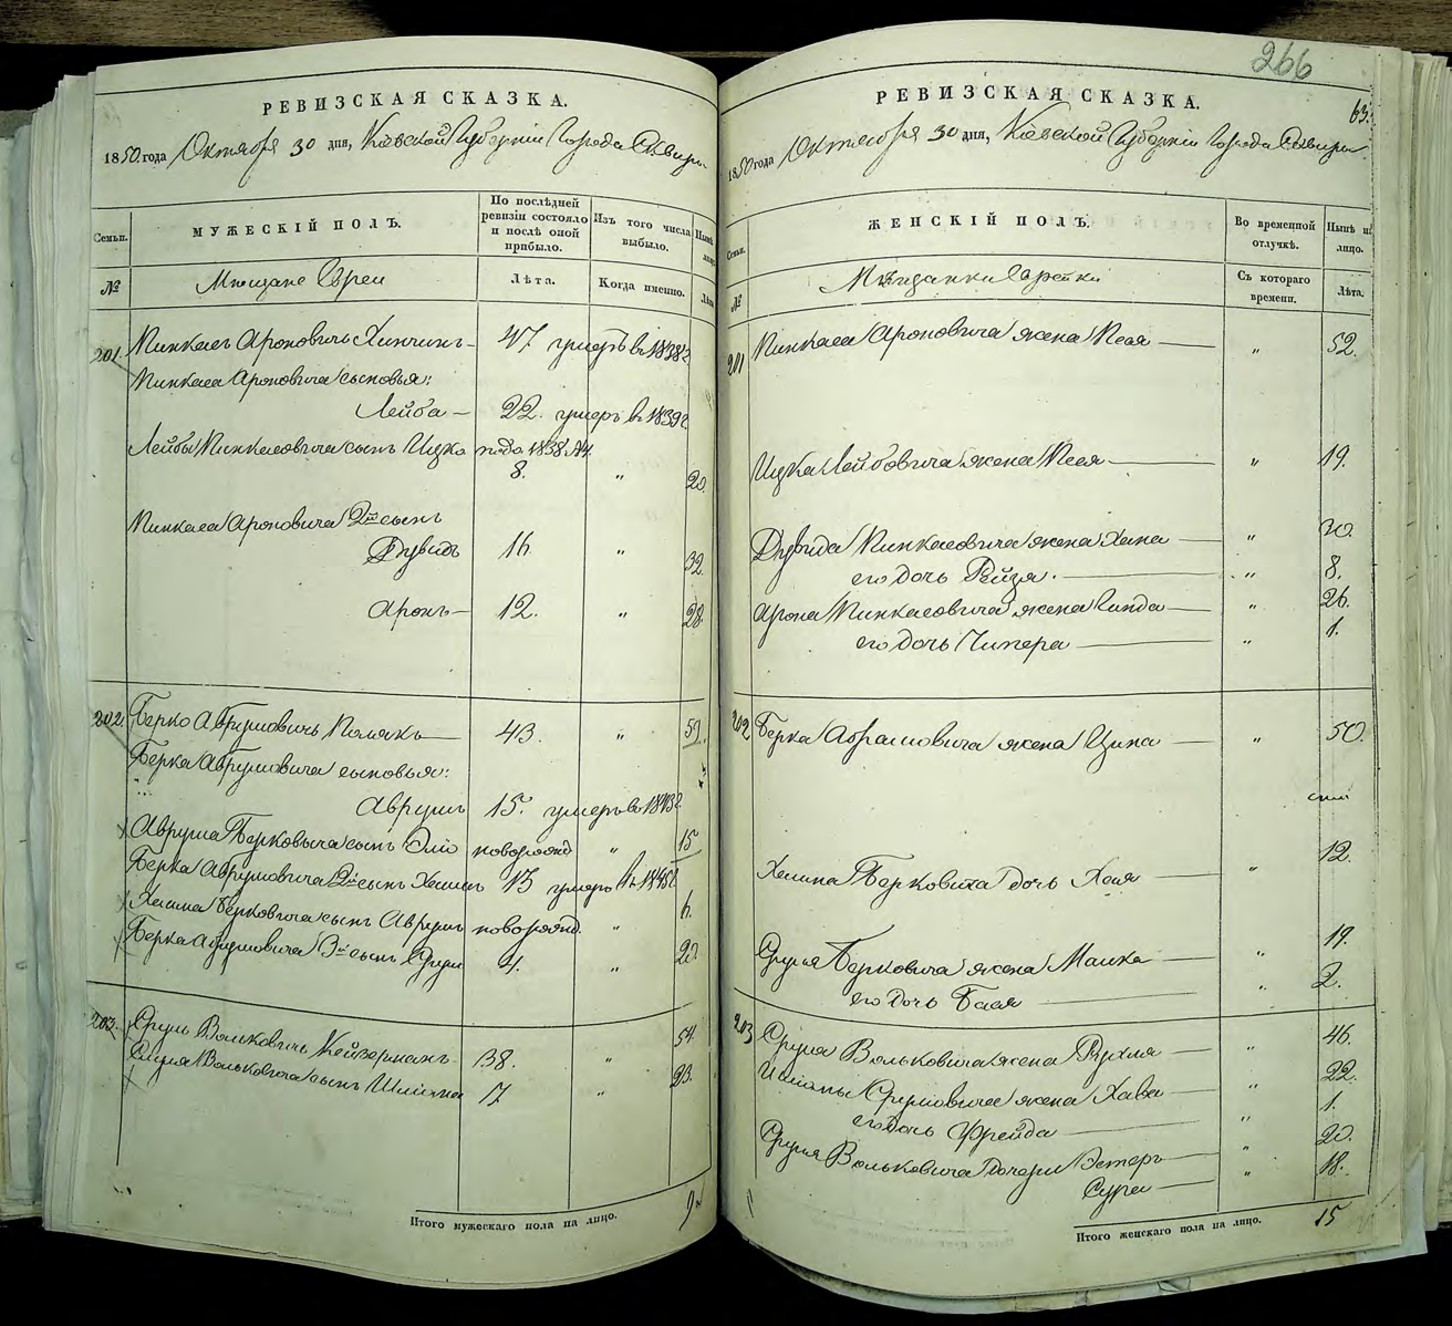 266
РЕВИЗСКАЯ СКАЗКА.
1850 года Октября 30 дня, Кіевской Губерніи Города Сквиры
Семьи.
МУЖЕСКІЙ ПОЛЪ.
По послѣдней ревизіи состояло и послѣ оной прибыло.
Изъ того числа выбыло.
Нынѣ на лицо.
№
Мѣщане Евреи
Лѣта.
Когда именно.
Лѣта
201. Пинкасъ Ароновичь 47 умеръ въ 1838 г
Пинкаса Ароновича сыновья:
Лейба — 22. умеръ въ 1839 г
Лейбы Пинкасовича сынъ Ицко 1838
8. " 20.
Пинкаса Ароновича 2й сынъ
Дувидъ 16 " 32.
Аронъ — 12. " 28.
202. Берко Аврумовичь Полякъ — 43. " 59.
Берка Аврумовича сыновья:
Аврумъ 15. умеръ въ 1843 г
Аврума Берковича сынъ Эліо новорожд " 15
Берка Аврумовича 2й сынъ Хаимъ 13 умеръ въ
Хаима Берковича сынъ Аврумъ новорожд. " 6.
Берка Аврумовича 3й сынъ Сруль 4. " 20.
203. Сруль Волковичь Кейзерманъ 38. " 54.
Сруля Вольковича сынъ 7 " 23.
Итого мужескаго пола на лицо. 9
63.
РЕВИЗСКАЯ СКАЗКА.
1850 года Октября 30 дня, Кіевской Губерніи Города Сквиры
Семьи.
ЖЕНСКІЙ ПОЛЪ.
Во временной отлучкѣ.
Нынѣ на лицо.
№
Мѣщанки Еврейки
Съ котораго времени.
Лѣта.
201 Пинкаса Ароновича жена Песя — " 52.
Ицка Лейбовича жена Песя — " 19.
Дувида Пинкасовича жена Хана — " 30.
его дочь Рейзя. — " 8.
Арона Пинкасовича жена Гинда — " 26.
его дочь Ципера — " 1.
202 Берка Аврамовича жена Ципа — " 50.
Хаима Берковича дочь Хая — " 12.
Сруля Берковича жена Малка — " 19.
его дочь Бася — " 2.
203 Сруля Вольковича жена Рухля — " 46.
Срулевича жена Хава — " 22.
его дочь Фрейда — " 1.
Сруля Вольковича дочери Эстеръ — " 20.
Сура — " 18.
Итого женскаго пола на лицо. 15